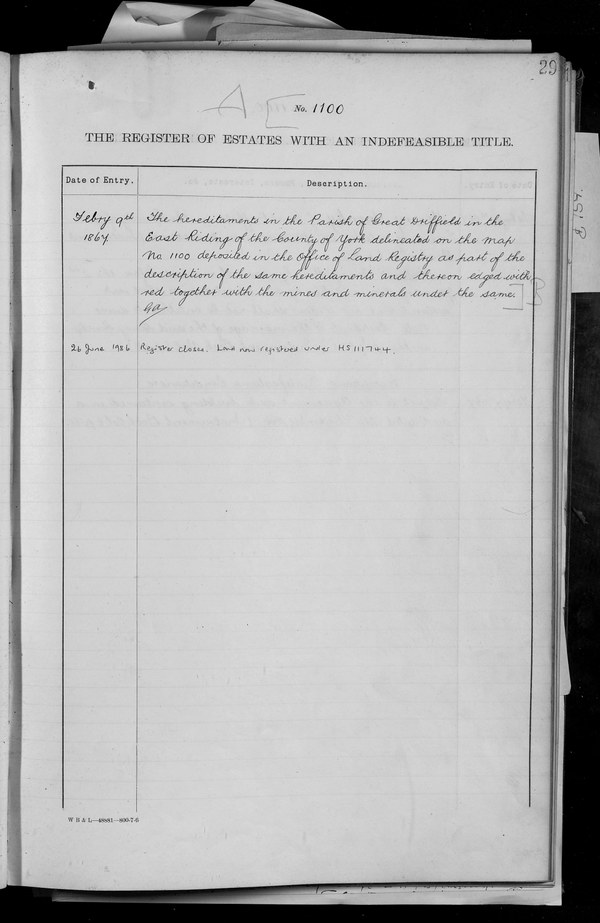 29
A E
No. 1100
THE REGISTER OF ESTATES WITH AN INDEFEASIBLE TITLE.
Date of Entry.
Description.
Febry 9th
1867
The hereditaments in the Parish of Great Driffield in the
East Riding of the County of York delineated on the Map
No. 1100 deposited in the Office of Land Registry as part of the
description of the same hereditaments and thereon edged with
red together with the mines and minerals under the same.
26 June 1986
Register closed. Land now registered under HS 111744.
W B & L—48881—800-7-6